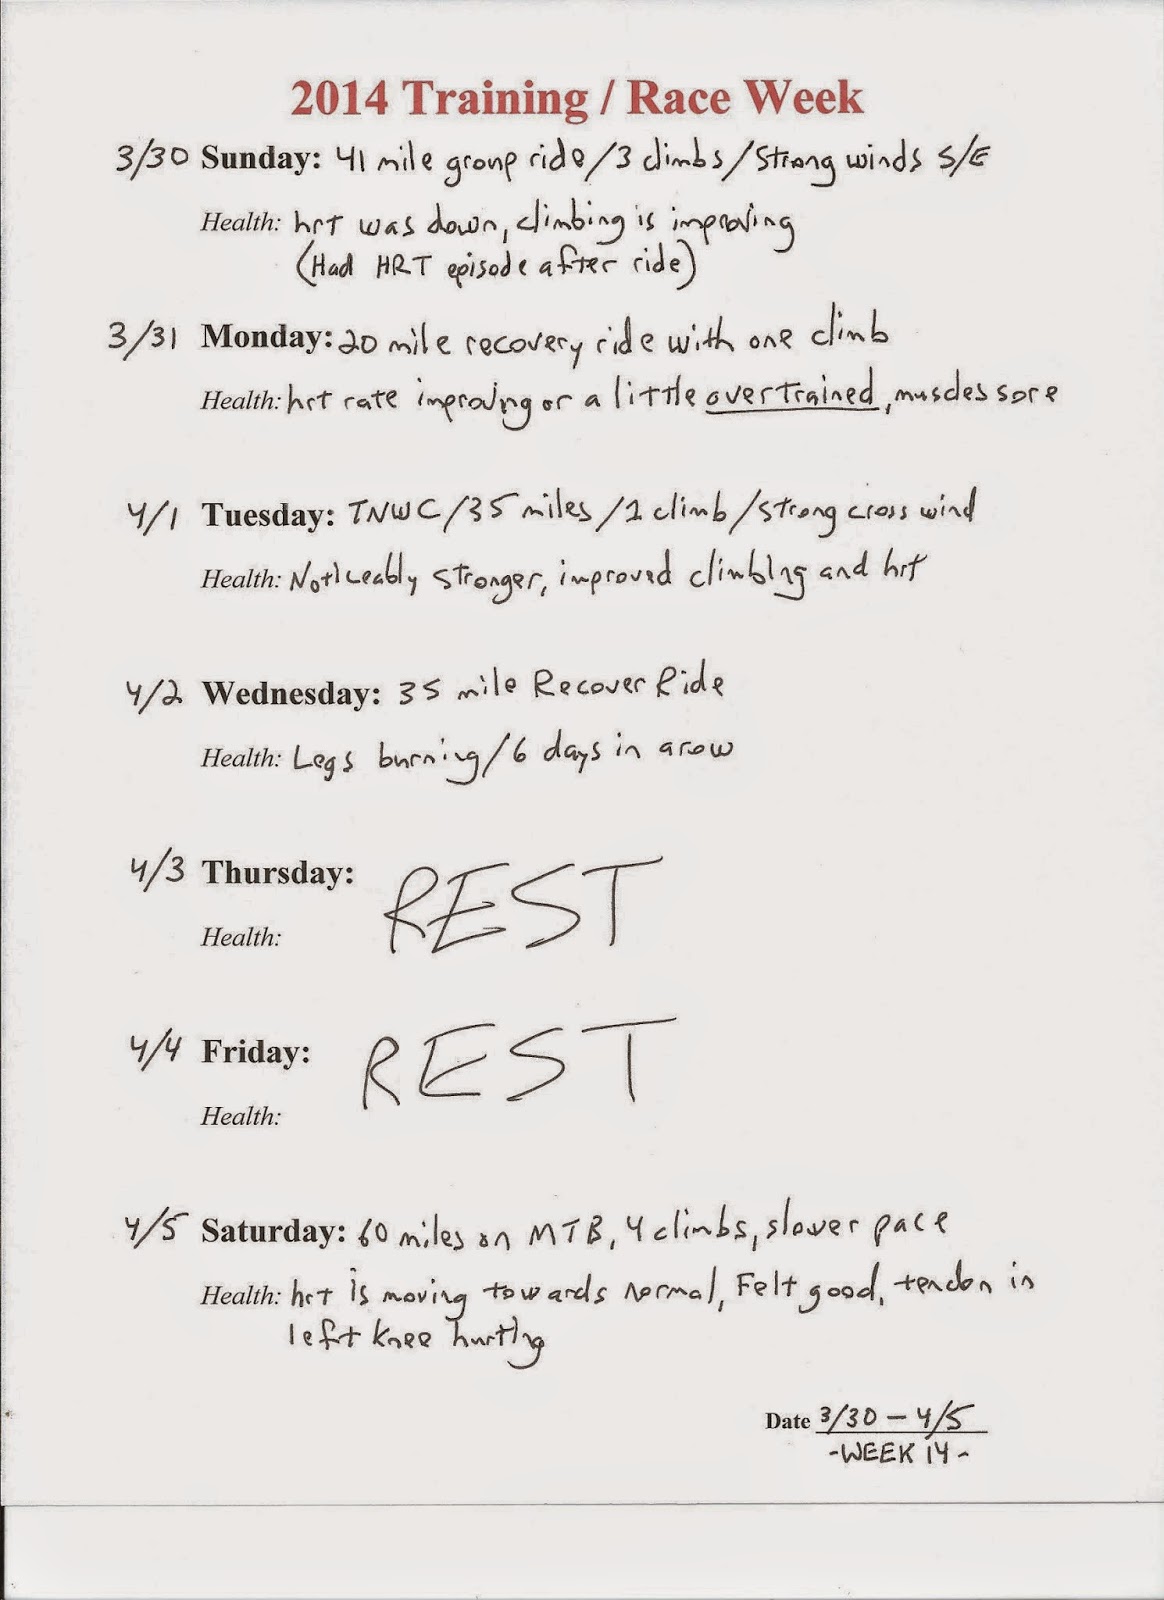 2014 Training / Race Week
3/30 Sunday: 41 mile group ride/3 climbs/strong winds S/E
Health: hrt was down, climbing is improving
(Had HRT episode after ride)
3/31 Monday: 20 mile recovery ride with one climb
Health: hrt rate improving or a little overtrained, muscles sore
4/1 Tuesday: TNWC/35 miles/1 climb/strong cross wind
Health: Noticeably stronger, improved climbing and hrt
4/2 Wednesday: 35 mile Recover Ride
Health: Legs burning/6 days in arow
4/3 Thursday: REST
Health:
4/4 Friday: REST
Health:
4/5 Saturday: 60 miles on MTB, 4 climbs, slower pace
Health: hrt is moving towards normal, Felt good, tendon in
left knee hurting
Date 3/30 - 4/5
-WEEK 14-